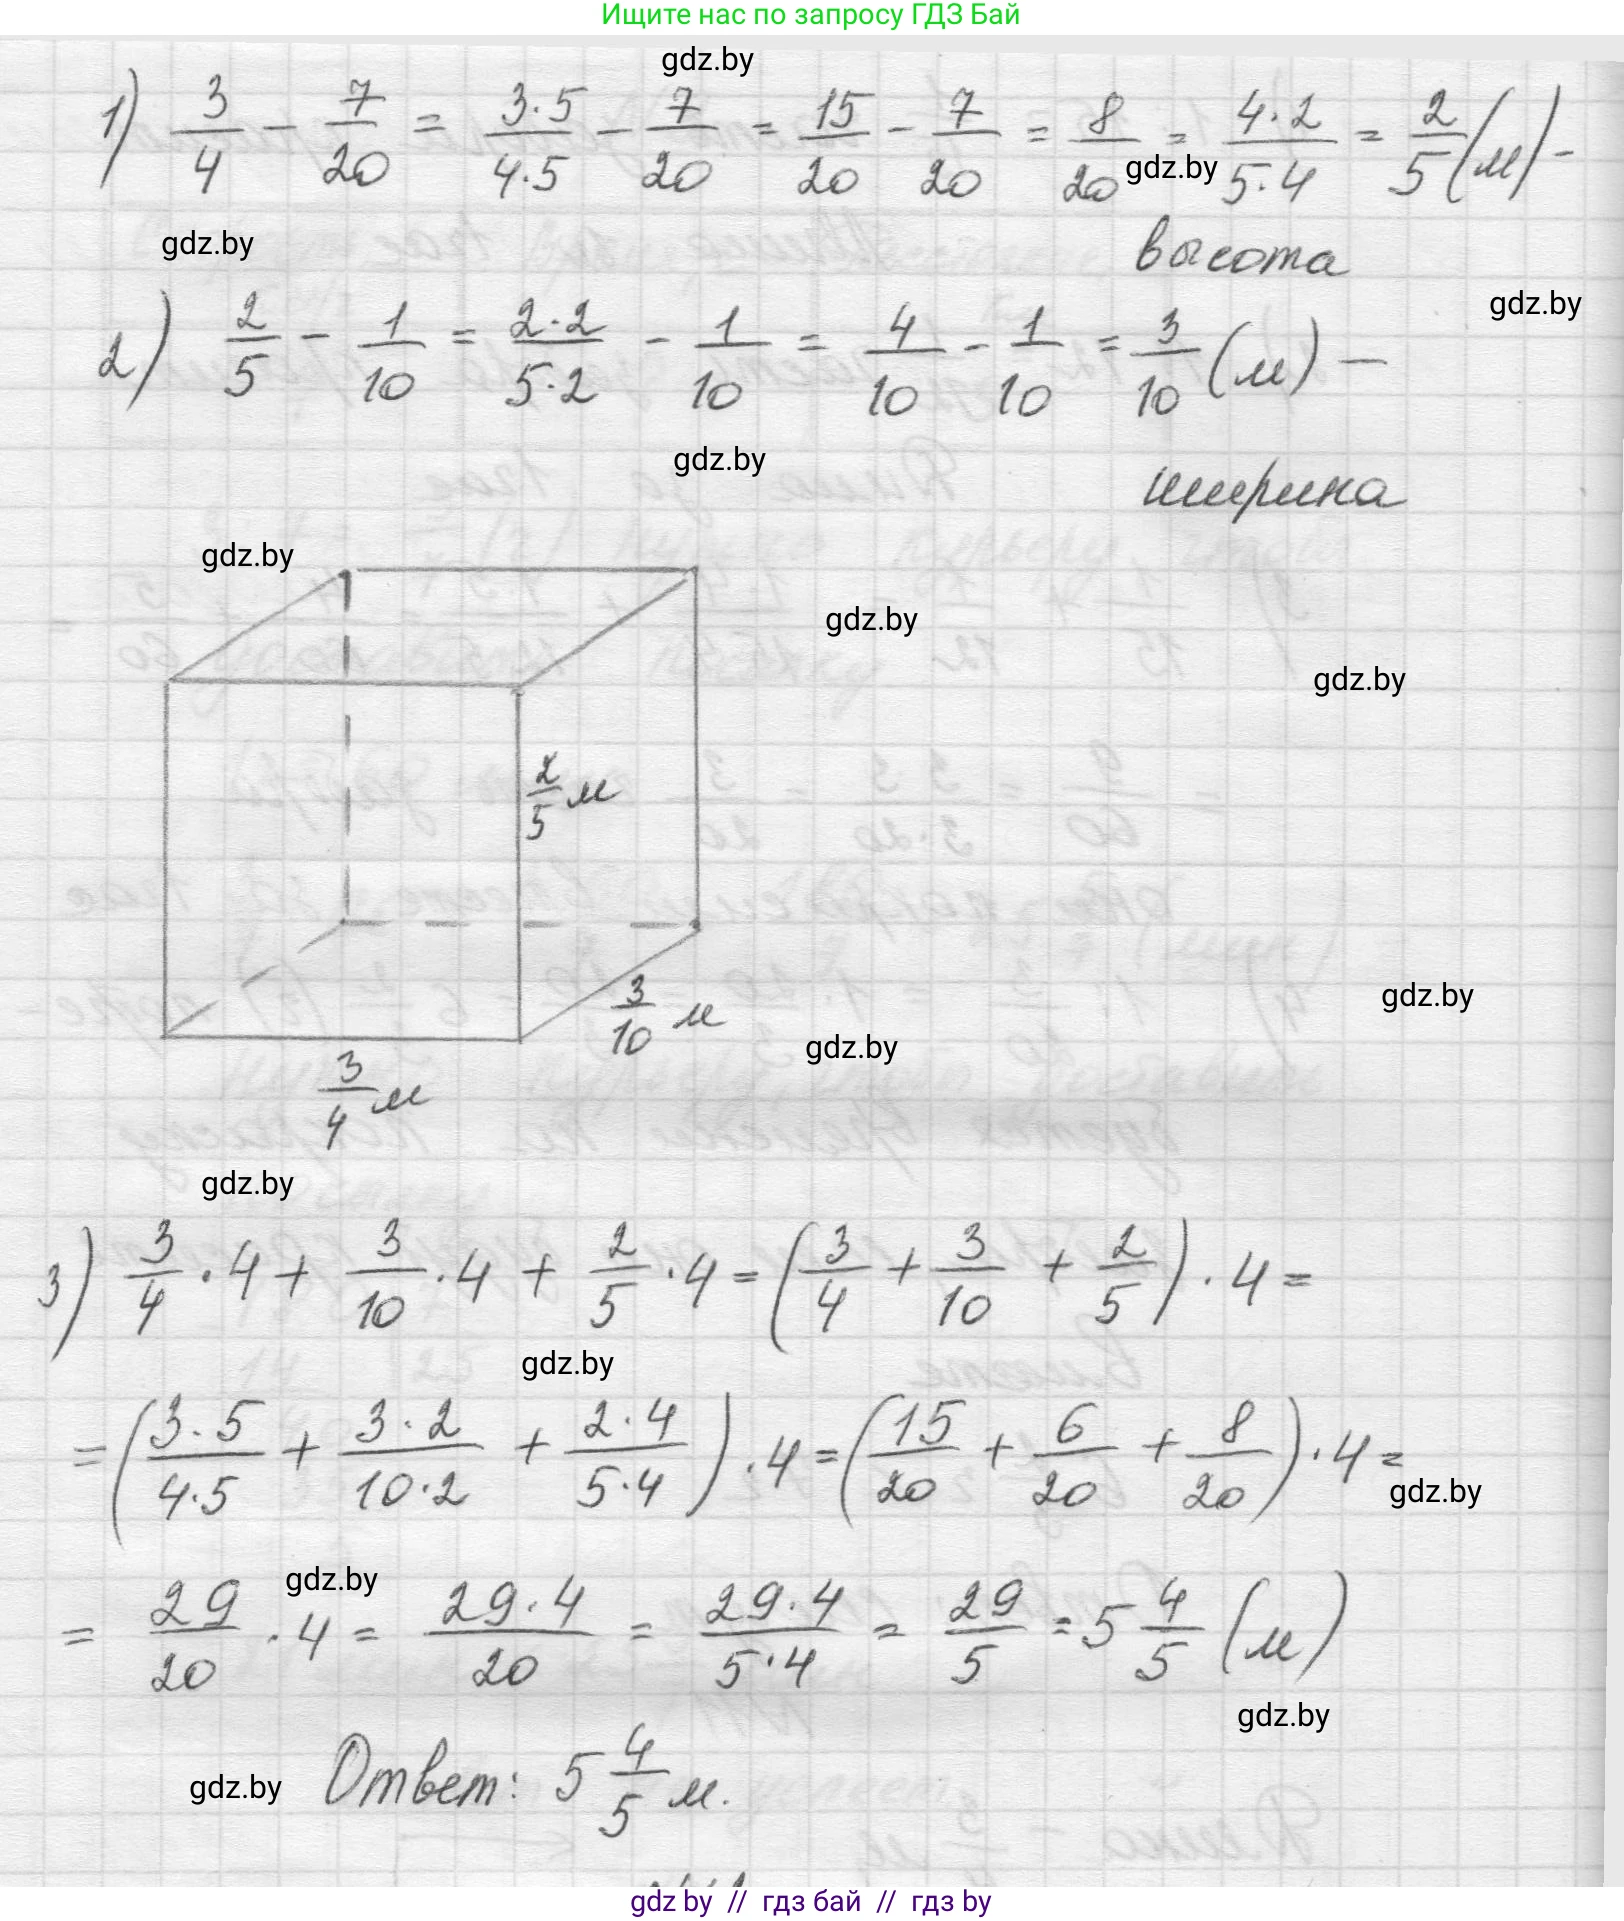 Ищите нас по запросу ГДЗ Бай
gdz.by
1) 3/4 - 7/20 = 3·5/4·5 - 7/20 = 15/20 - 7/20 = 8/20 = 4·2/5·4 = 2/5 (м) -
gdz.by
gdz.by
высота
gdz.by
2) 2/5 - 1/10 = 2·2/5·2 - 1/10 = 4/10 - 1/10 = 3/10 (м) —
gdz.by
ширина
gdz.by
gdz.by
gdz.by
2/5 м
gdz.by
3/10 м
gdz.by
3/4 м
gdz.by
3) 3/4 · 4 + 3/10 · 4 + 2/5 · 4 = (3/4 + 3/10 + 2/5) · 4 =
gdz.by
= (3·5/4·5 + 3·2/10·2 + 2·4/5·4) · 4 = (15/20 + 6/20 + 8/20) · 4 =
gdz.by
gdz.by
= 29/20 · 4 = 29·4/20 = 29·4/5·4 = 29/5 = 5 4/5 (м)
gdz.by
gdz.by
Ответ: 5 4/5 м.
gdz by // гдз бай // гдз by